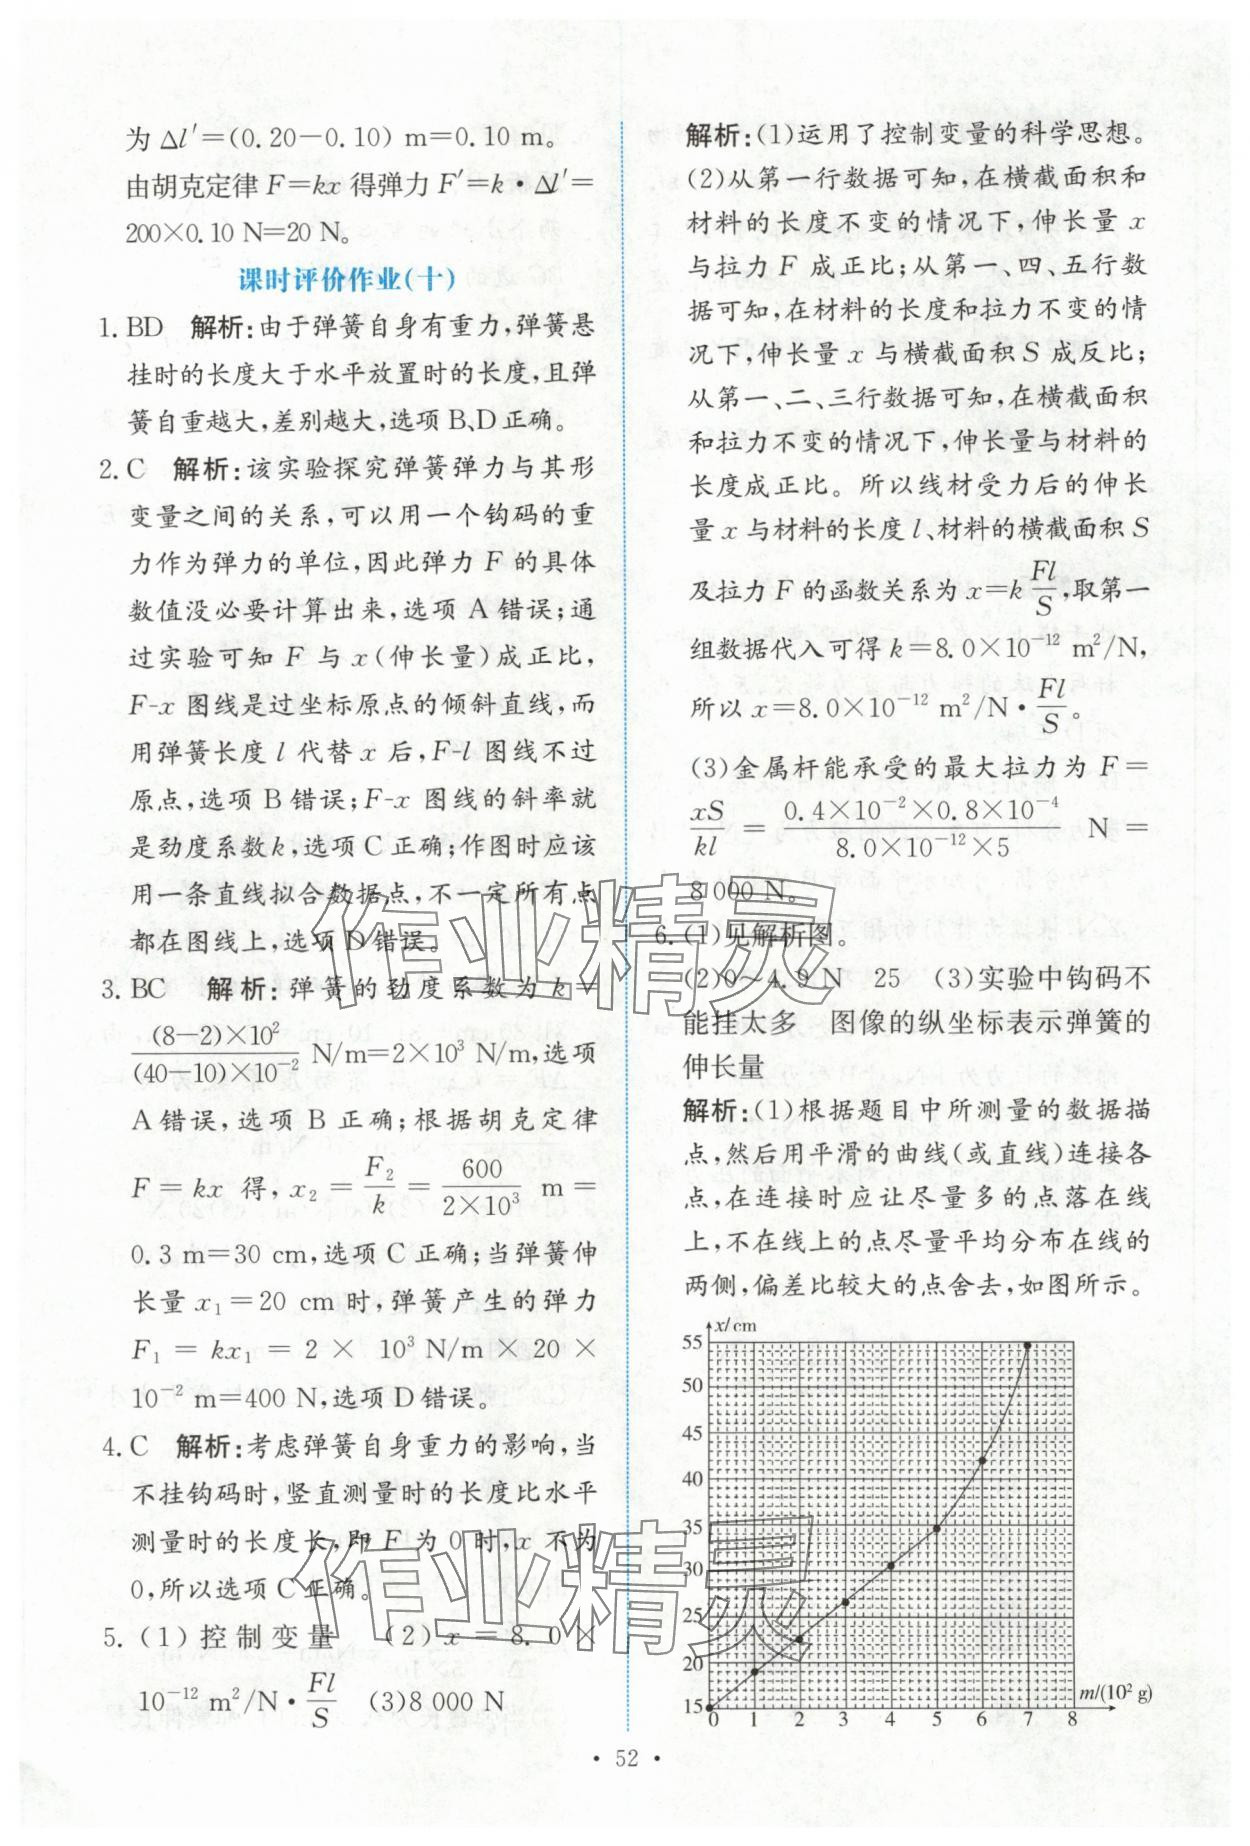 为 Δl′=(0.20−0.10) m=0.10 m。
由胡克定律 F=kx 得弹力 F′=k·Δl′=
200×0.10 N=20 N。
课时评价作业(十)
1. BD 解析:由于弹簧自身有重力,弹簧悬
挂时的长度大于水平放置时的长度,且弹
簧自重越大,差别越大,选项 B、D 正确。
2. C 解析:该实验探究弹簧弹力与其形
变量之间的关系,可以用一个钩码的重
力作为弹力的单位,因此弹力 F 的具体
数值没必要计算出来,选项 A 错误;通
过实验可知 F 与 x(伸长量)成正比,
F-x 图线是过坐标原点的倾斜直线,而
用弹簧长度 l 代替 x 后,F-l 图线不过
原点,选项 B 错误;F-x 图线的斜率就
是劲度系数 k,选项 C 正确;作图时应该
用一条直线拟合数据点,不一定所有点
都在图线上,选项 D 错误。
3. BC 解析:弹簧的劲度系数为 k=
(8−2)×10²/(40−10)×10⁻² N/m=2×10³ N/m,选项
A 错误,选项 B 正确;根据胡克定律
F=kx 得,x₂=F₂/k=600/2×10³ m=
0.3 m=30 cm,选项 C 正确;当弹簧伸
长量 x₁=20 cm 时,弹簧产生的弹力
F₁=kx₁=2×10³ N/m×20×
10⁻² m=400 N,选项 D 错误。
4. C 解析:考虑弹簧自身重力的影响,当
不挂钩码时,竖直测量时的长度比水平
测量时的长度长,即 F 为 0 时,x 不为
0,所以选项 C 正确。
5. (1)控制变量 (2)x=8.0×
10⁻¹² m²/N·Fl/S (3)8 000 N
解析:(1)运用了控制变量的科学思想。
(2)从第一行数据可知,在横截面积和
材料的长度不变的情况下,伸长量 x
与拉力 F 成正比;从第一、四、五行数
据可知,在材料的长度和拉力不变的情
况下,伸长量 x 与横截面积 S 成反比;
从第一、二、三行数据可知,在横截面积
和拉力不变的情况下,伸长量与材料的
长度成正比。所以线材受力后的伸长
量 x 与材料的长度 l、材料的横截面积 S
及拉力 F 的函数关系为 x=k Fl/S,取第一
组数据代入可得 k=8.0×10⁻¹² m²/N,
所以 x=8.0×10⁻¹² m²/N·Fl/S。
(3)金属杆能承受的最大拉力为 F=
xS/kl=0.4×10⁻²×0.8×10⁻⁴/8.0×10⁻¹²×5 N=
8 000 N。
6. (1)见解析图。
(2)0~4.9 N 25 (3)实验中钩码不
能挂太多 图像的纵坐标表示弹簧的
伸长量
解析:(1)根据题目中所测量的数据描
点,然后用平滑的曲线(或直线)连接各
点,在连接时应让尽量多的点落在线
上,不在线上的点尽量平均分布在线的
两侧,偏差比较大的点舍去,如图所示。
x/cm
55
50
45
40
35
30
25
20
15
0 1 2 3 4 5 6 7 8
m/(10² g)
· 52 ·
作业精灵
作业精灵